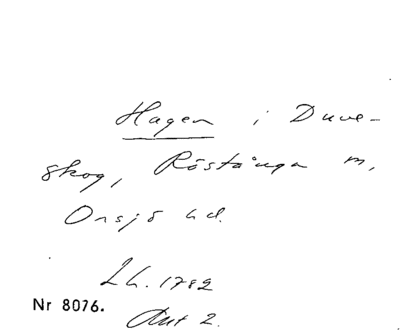 Hagen i Duve-
skog, Röstånga m,
Onsjö hd.
Lh. 1782
Nr 8076.
Akt 2.